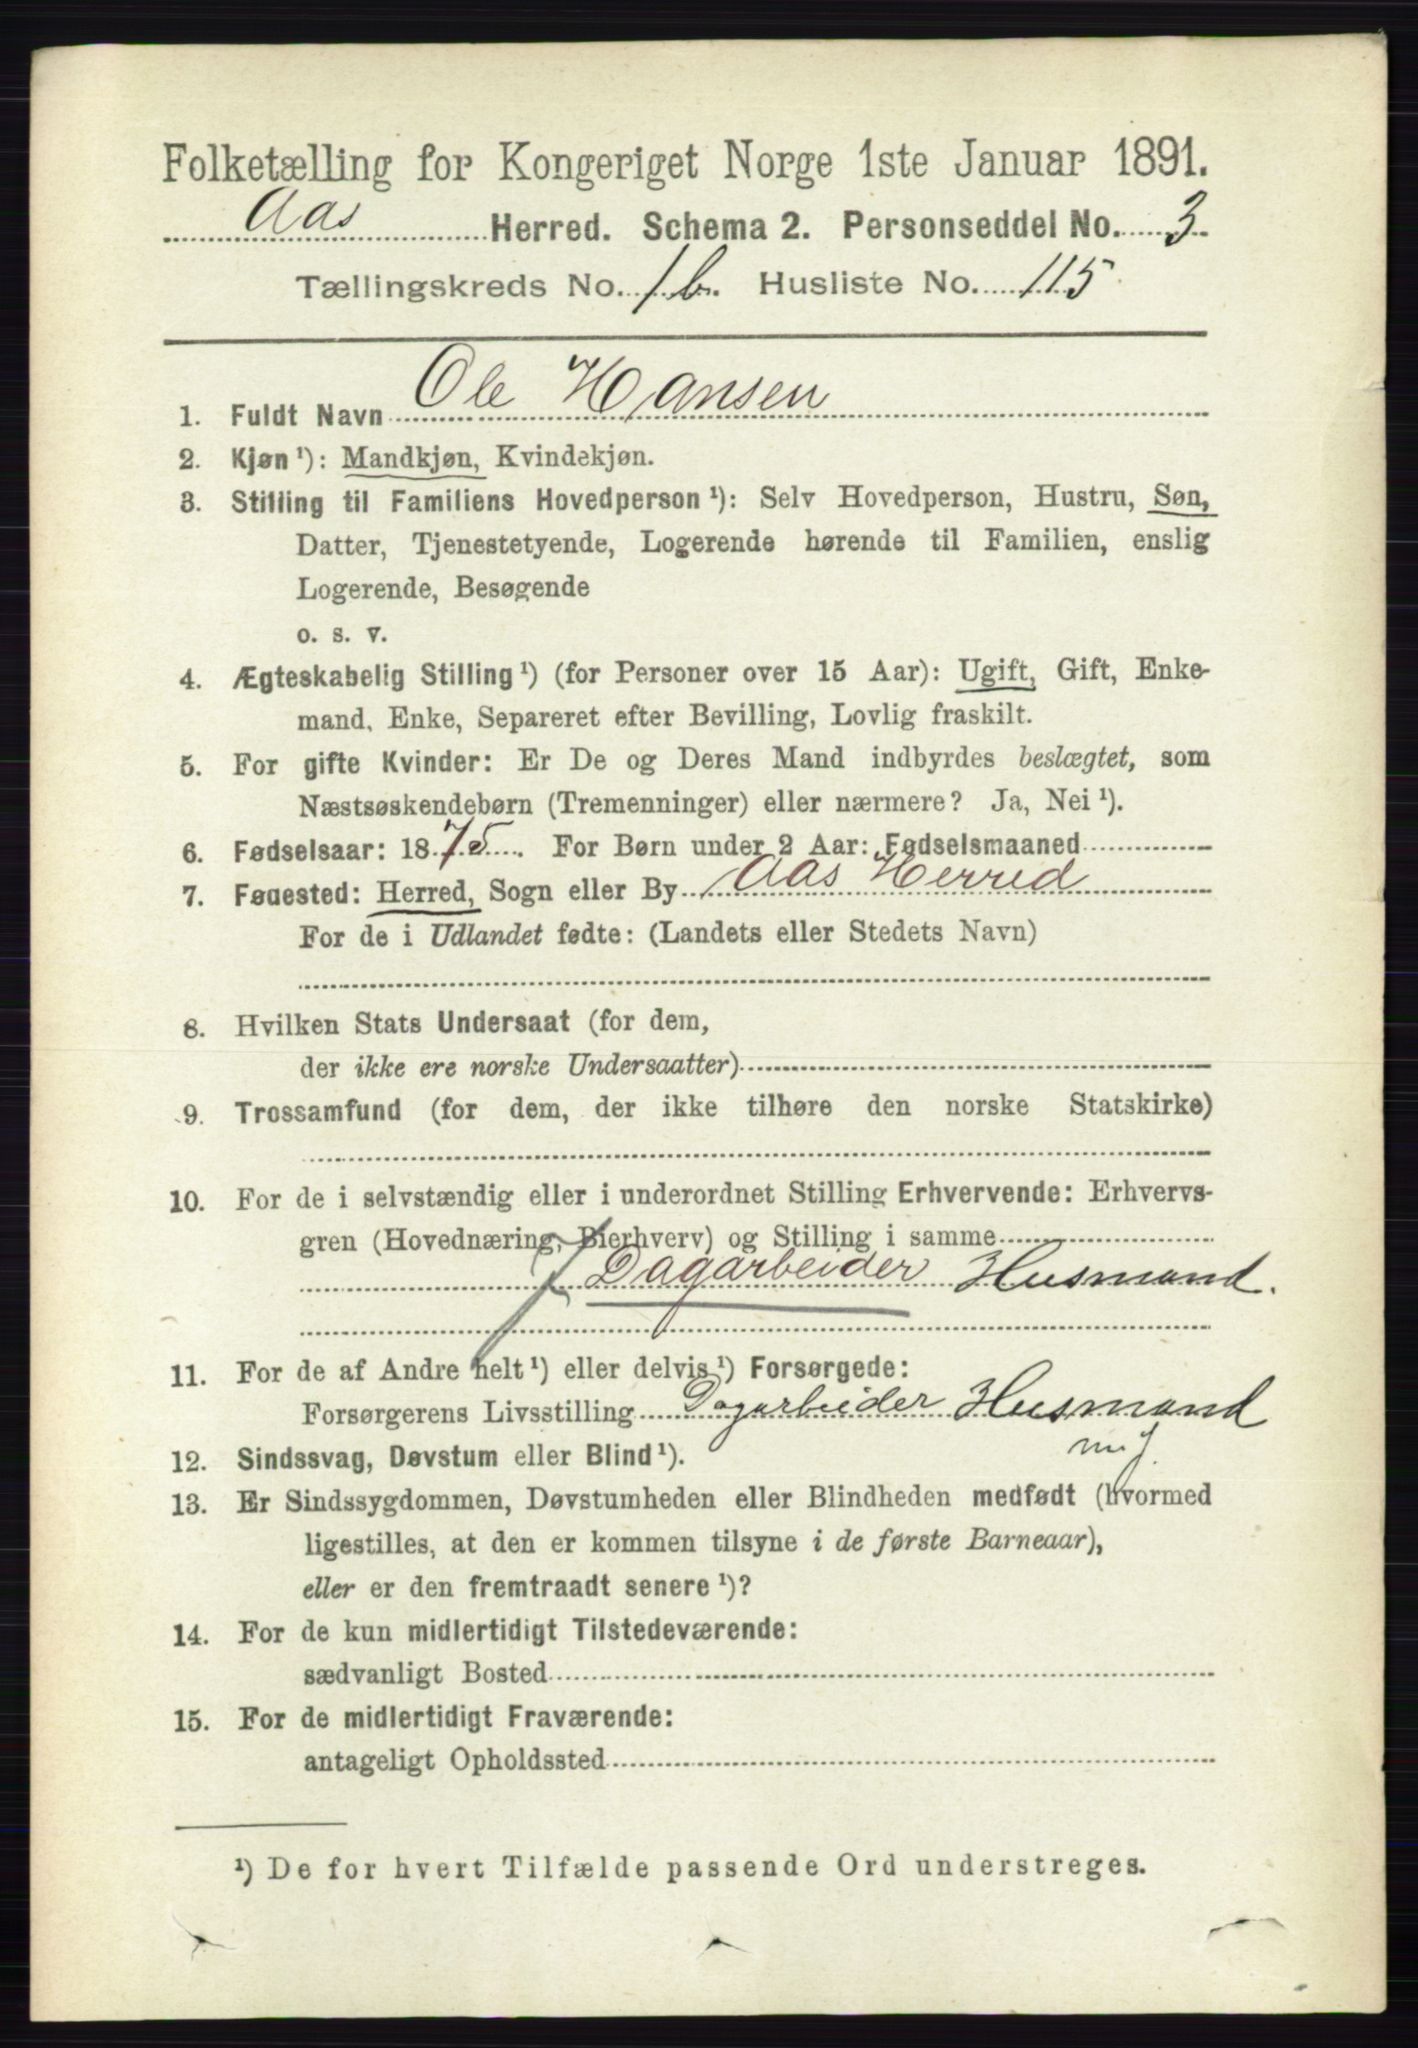 Folketælling for Kongeriget Norge 1ste Januar 1891.
Aas Herred. Schema 2. Personseddel No. 3
Tællingskreds No. 1b. Husliste No. 115
1. Fuldt Navn Ole Hansen
2. Kjøn ¹): Mandkjøn, Kvindekjøn.
3. Stilling til Familiens Hovedperson ¹): Selv Hovedperson, Hustru, Søn,
Datter, Tjenestetyende, Logerende hørende til Familien, enslig
Logerende, Besøgende
o. s. v.
4. Ægteskabelig Stilling ¹) (for Personer over 15 Aar): Ugift, Gift, Enke-
mand, Enke, Separeret efter Bevilling, Lovlig fraskilt.
5. For gifte Kvinder: Er De og Deres Mand indbyrdes beslægtet, som
Næstsøskendebørn (Tremenninger) eller nærmere? Ja, Nei ¹).
6. Fødselsaar: 1875. For Børn under 2 Aar: Fødselsmaaned
7. Føuested: Herred, Sogn eller By Aas Herred
For de i Udlandet fødte: (Landets eller Stedets Navn)
8. Hvilken Stats Undersaat (for dem,
der ikke ere norske Undersaatter)
9. Trossamfund (for dem, der ikke tilhøre den norske Statskirke)
10. For de i selvstændig eller i underordnet Stilling Erhvervende: Erhvervs-
gren (Hovednæring, Bierhverv) og Stilling i samme
Dagarbeider Husmand.
11. For de af Andre helt ¹) eller delvis ¹) Forsørgede:
Forsørgerens Livsstilling Dagarbeider Husmand
m. J.
12. Sindssvag, Døvstum eller Blind ¹).
13. Er Sindssygdommen, Døvstumheden eller Blindheden medfødt (hvormed
ligestilles, at den er kommen tilsyne i de første Barneaar),
eller er den fremtraadt senere ¹)?
14. For de kun midlertidigt Tilstedeværende:
sædvanligt Bosted
15. For de midlertidigt Fraværende:
antageligt Opholdssted
¹) De for hvert Tilfælde passende Ord understreges.